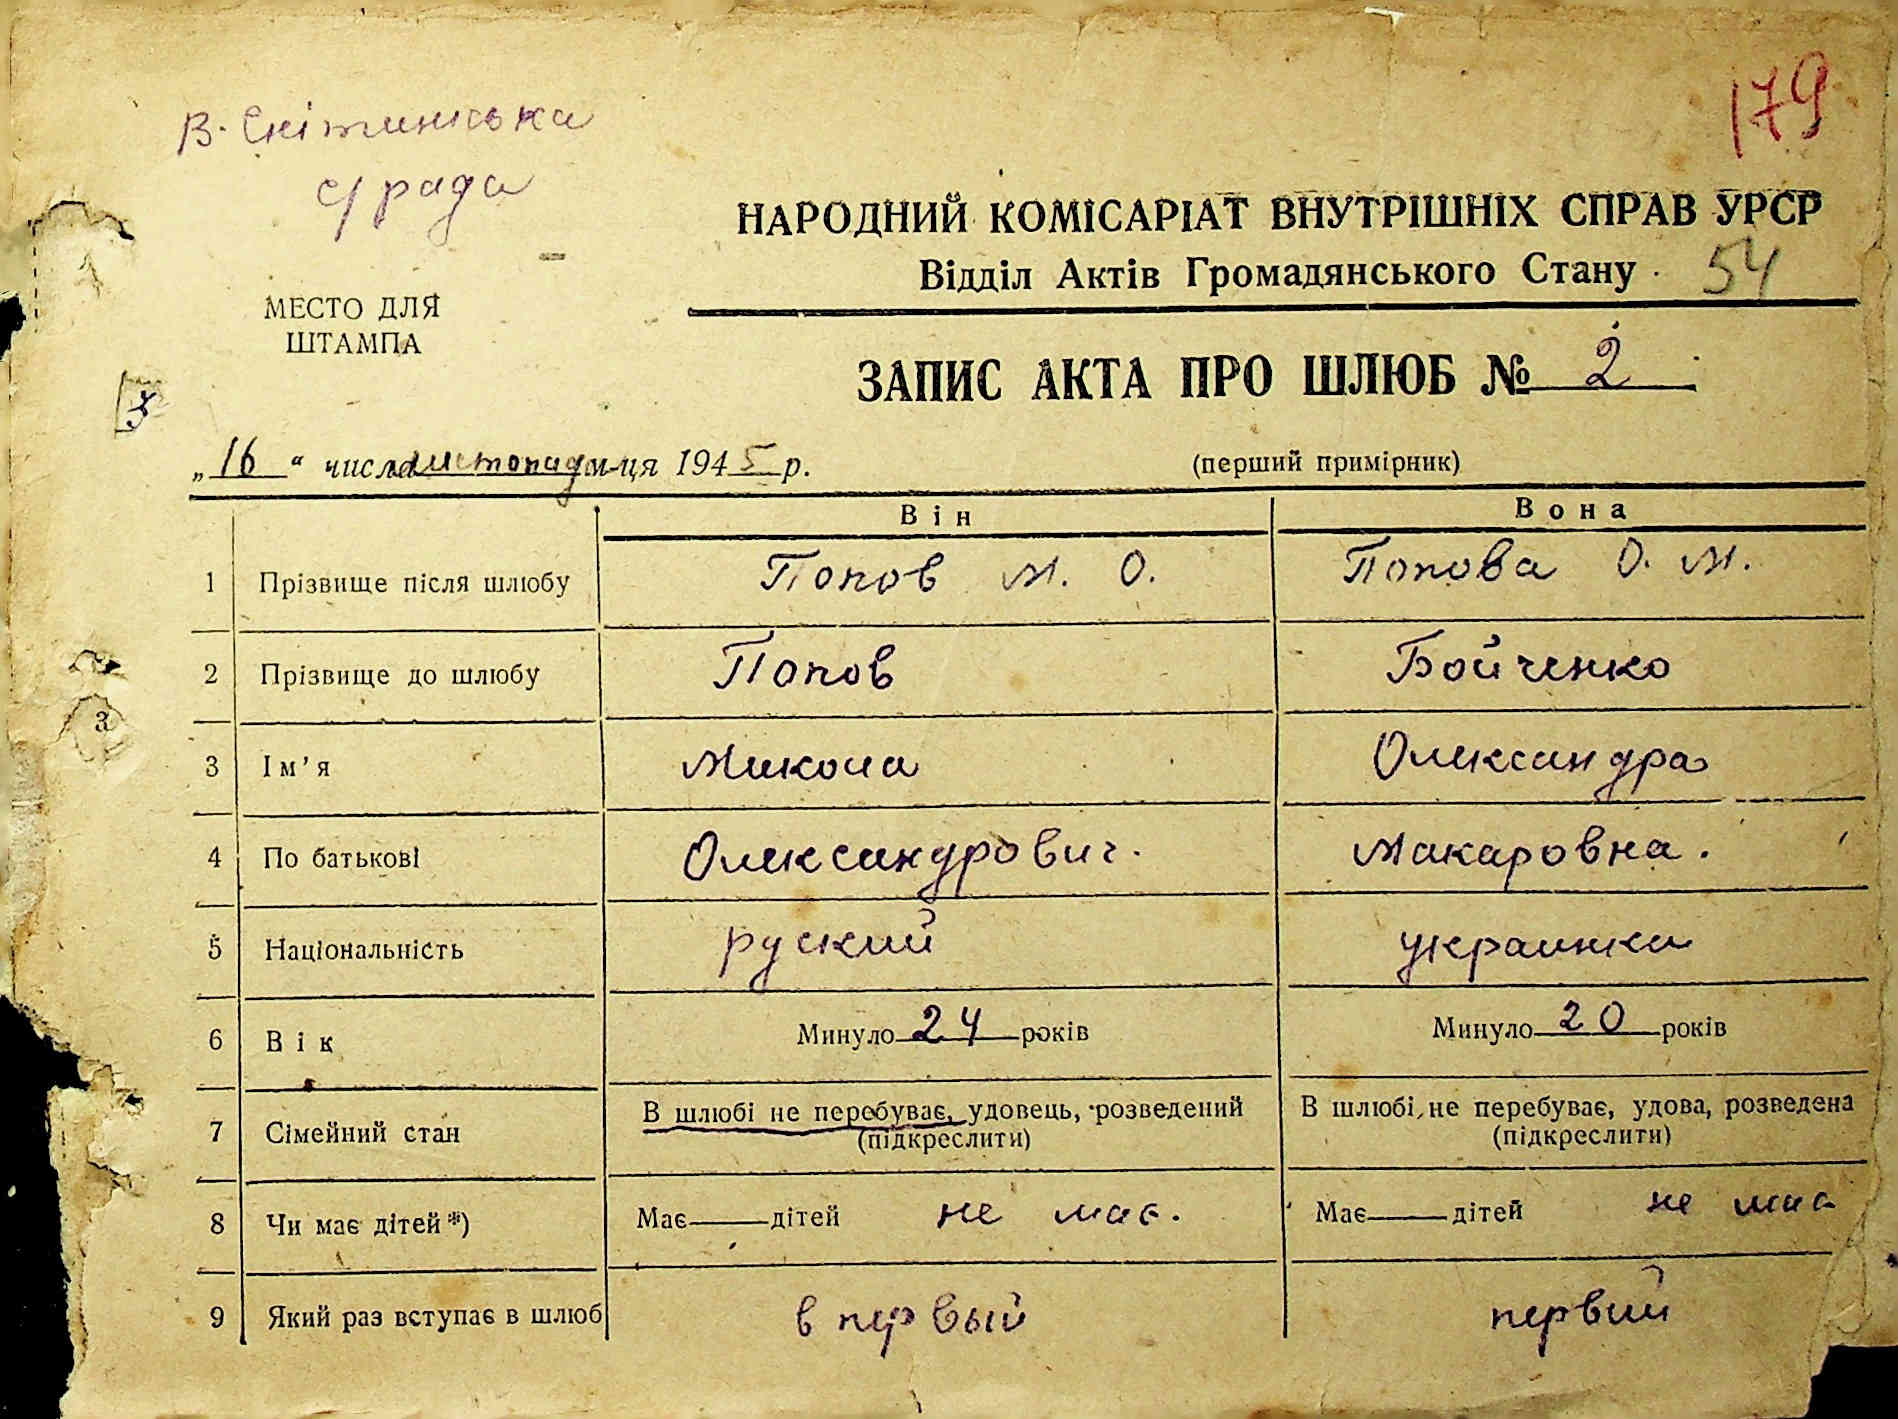 179
В. Снітинська
с/рада
НАРОДНИЙ КОМІСАРІАТ ВНУТРІШНІХ СПРАВ УРСР
Відділ Актів Громадянського Стану 54
МЕСТО ДЛЯ
ШТАМПА
ЗАПИС АКТА ПРО ШЛЮБ № 2
„16“ числа листопад м-ця 1945 р.
(перший примірник)
Він Вона
1 Прізвище після шлюбу Попов М. О. Попова О. М.
2 Прізвище до шлюбу Попов Бойченко
3 Ім’я Микола Олександра
4 По батькові Олександрович. Макаровна.
5 Національність руский украинка
6 Вік Минуло 24 років Минуло 20 років
7 Сімейний стан В шлюбі не перебуває, удовець, розведений (підкреслити) В шлюбі не перебуває, удова, розведена (підкреслити)
8 Чи має дітей*) Має дітей не має. Має дітей не має
9 Який раз вступає в шлюб в первый первий